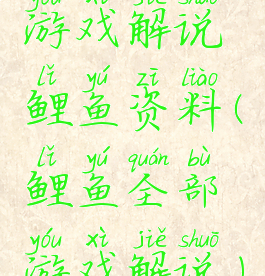 yóu xì jiě shuō
游戏解说
lǐ yú zī liào
鲤鱼资料(
lǐ yú quán bù
鲤鱼全部
yóu xì jiě shuō
游戏解说)